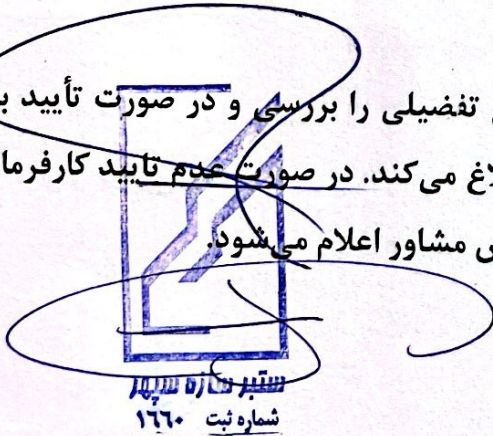 تفضیلی را بررسی و در صورت تأیید
لاغ می‌کند. در صورت عدم تایید کارفرما
مشاور اعلام می‌شود.
ستبر سازه سپهر
شماره ثبت ١٦٦٠